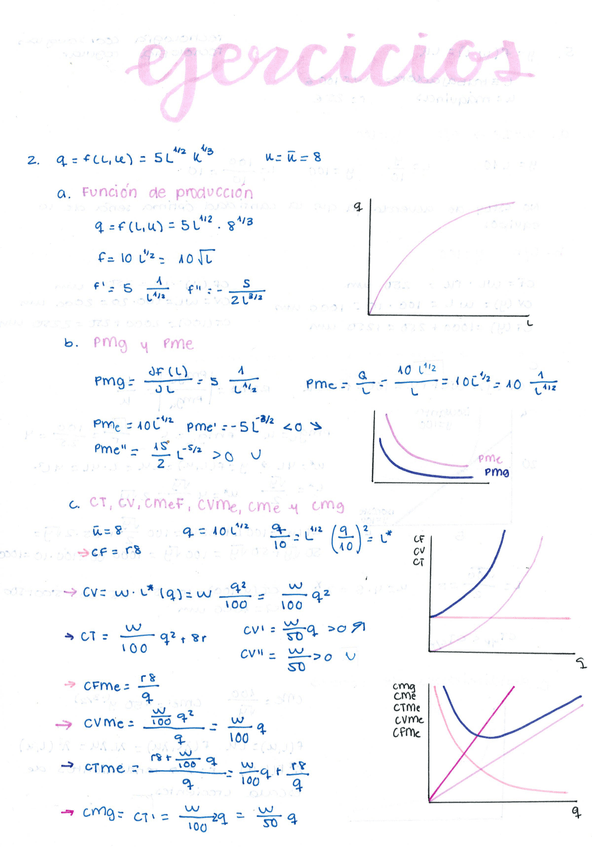 ejercicios
2. q = f(L,K) = 5L^1/2 K^1/3    K = K̄ = 8
a. Función de producción
q = f(L,K) = 5L^1/2 · 8^1/3
f = 10 L^1/2 = 10√L
f' = 5 1/L^1/2    f'' = - 5/2L^3/2
q
L
b. PMg y PMe
PMg = ∂F(L)/∂L = 5 1/L^1/2    PMe = Q/L = 10 L^1/2/L = 10L^-1/2 = 10 1/L^1/2
PMe = 10L^-1/2    PMe' = -5L^-3/2 < 0 ↘
PMe'' = 15/2 L^-5/2 > 0 ∪
PMe
PMg
c. CT, CV, CMeF, CVMe, CMe y CMg
K̄ = 8    q = 10L^1/2    q/10 = L^1/2    (q/10)^2 = L*
→ CF = r8
CF
CV
CT
q
→ CV = w · L*(q) = w q^2/100 = w/100 q^2
→ CT = w/100 q^2 + 8r    CV' = w/50 q > 0 ↗
CV'' = w/50 > 0 ∪
→ CFMe = r8/q
CMg
CMe
CTMe
CVMe
CFMe
q
→ CVMe = w/100 q^2/q = w/100 q
→ CTMe = r8 + w/100 q/q = w/100 q + r8/q
→ CMg = CT' = w/100 2q = w/50 q